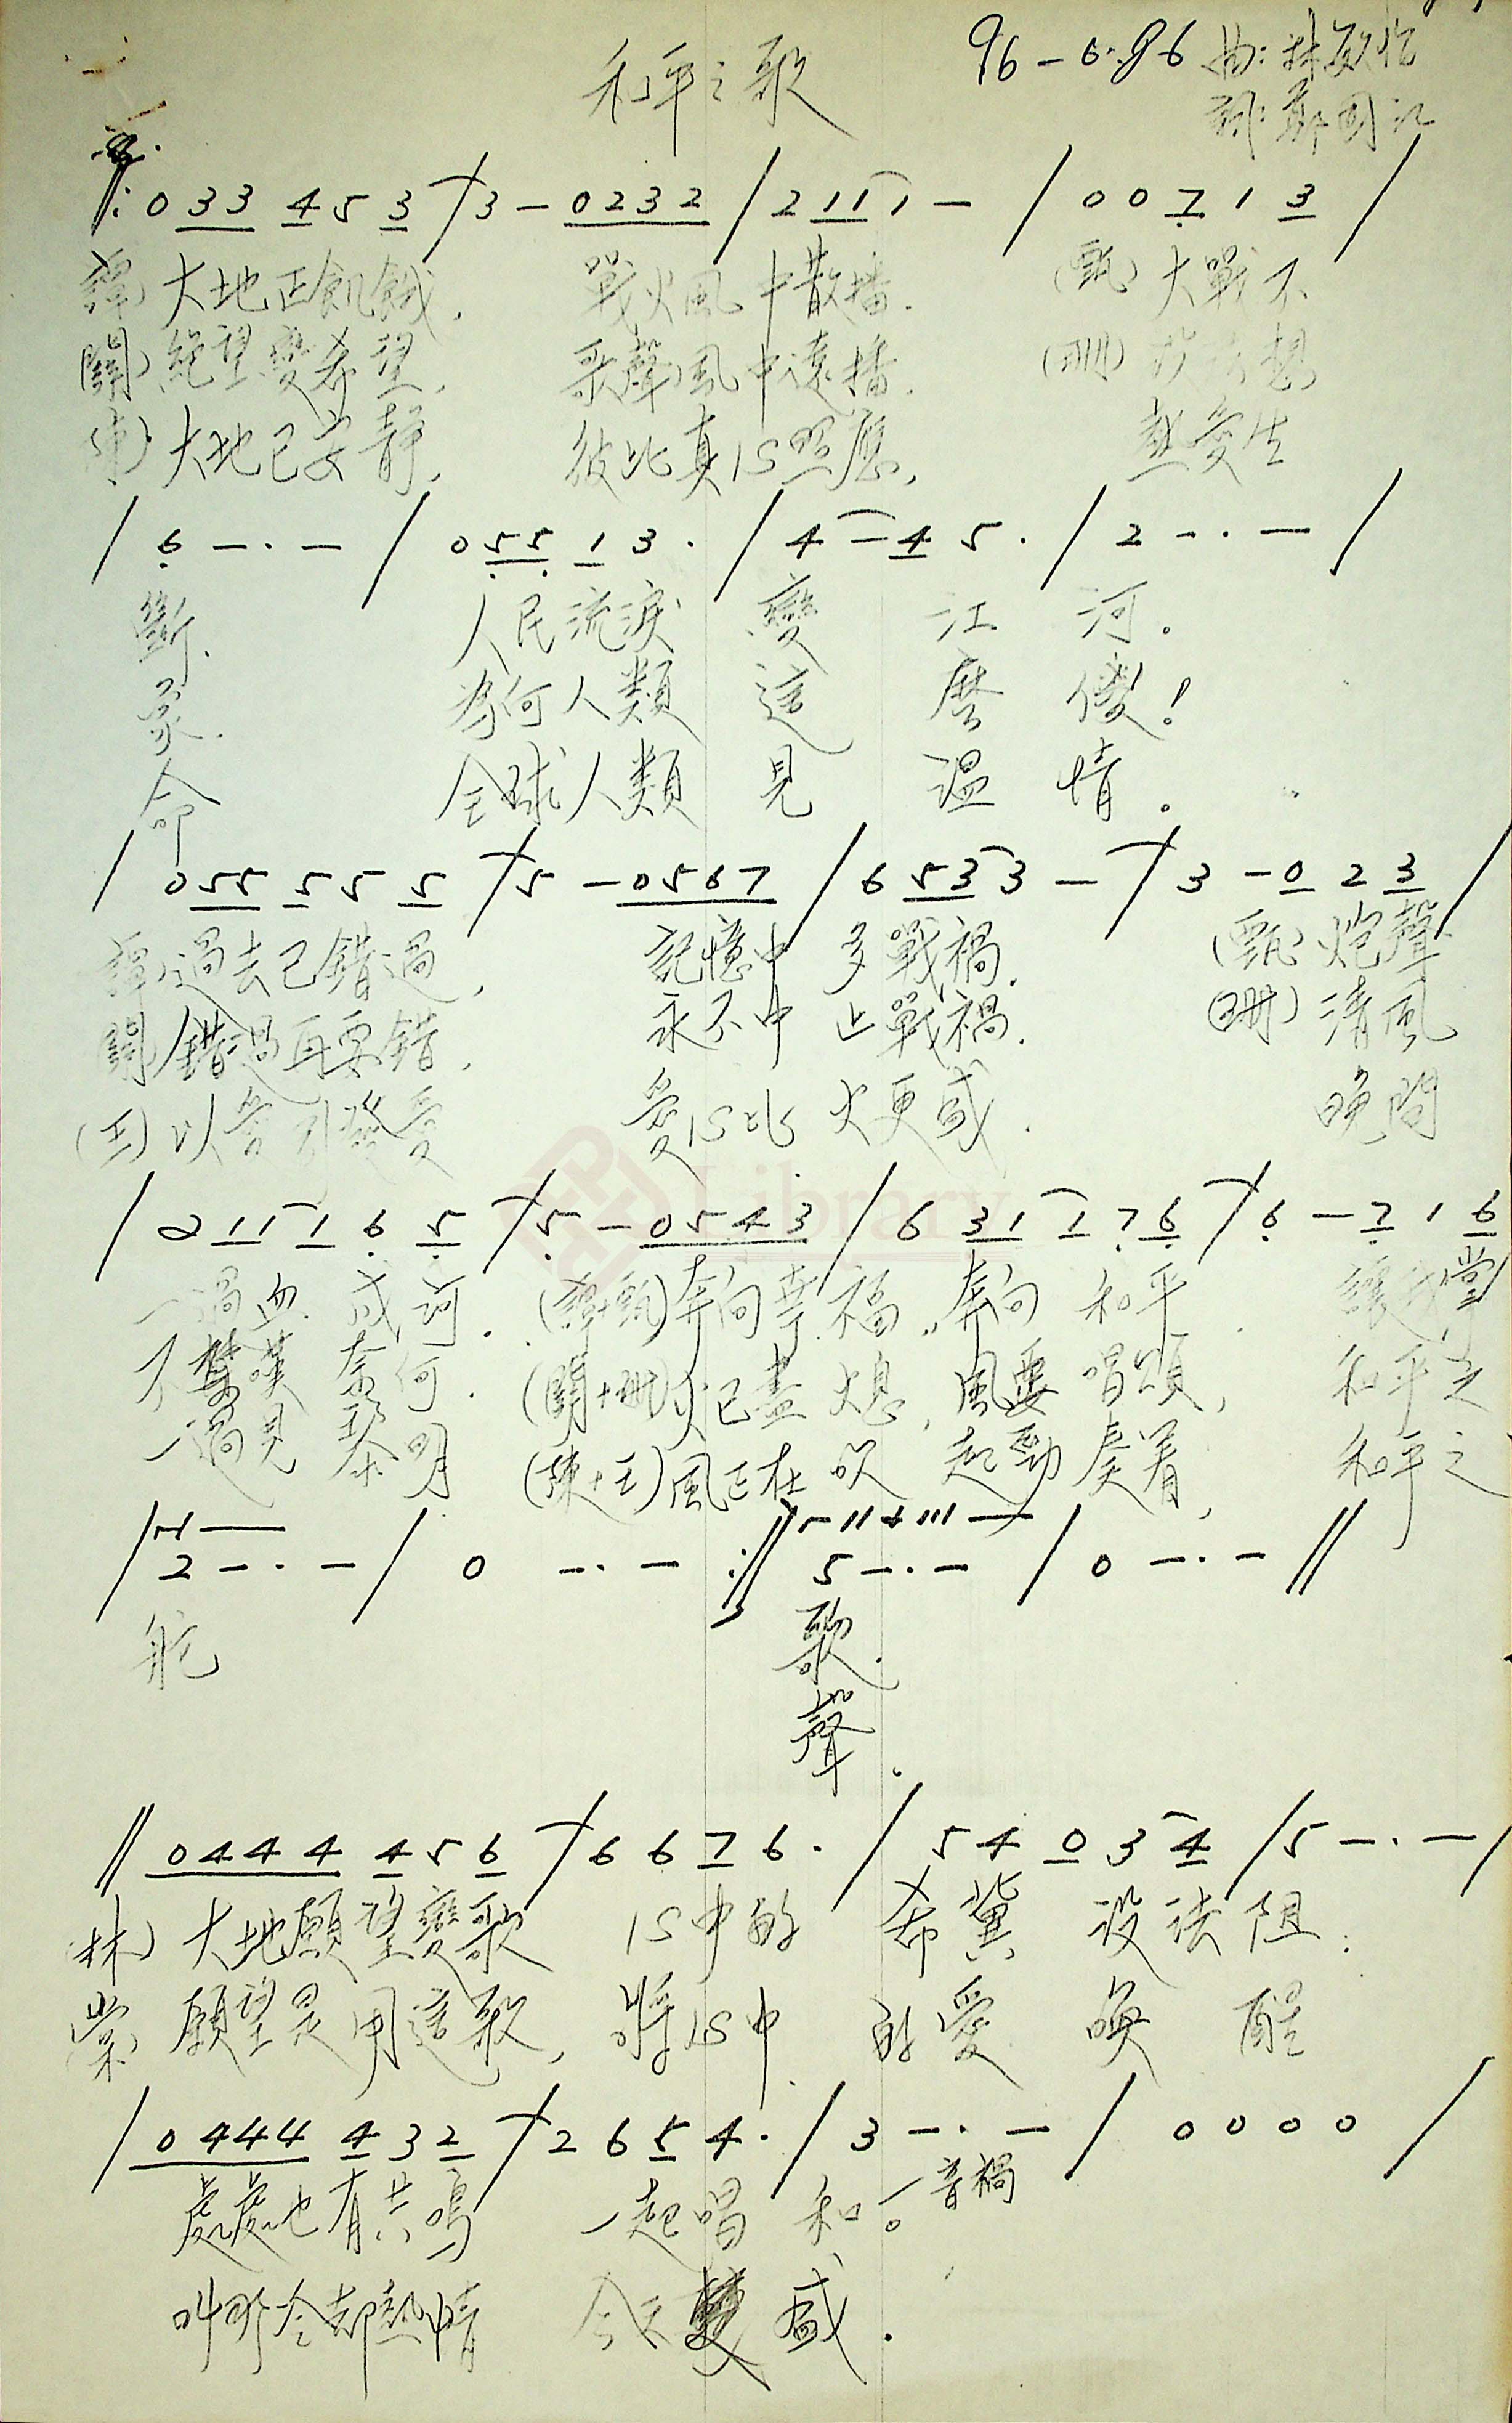 和平之歌 96-6-86 曲: 林敏怡
詞: 鄭國江
‖: 0 3 3 4 5 3 / 3 - 0 2 3 2 / 2 1 1 1 - / 0 0 7 1 3 /
譚) 大地正飢餓, 戰火風中散播. (甄) 大戰不
關) 絕望變希望, 歌聲風中遠播. (珊) 我去想
陳) 大地已安靜, 彼此真心照應, 熱愛生
/ 6 - · - / 0 5 5 1 3 · / 4 - 4 5 · / 2 - · - /
斷. 人民流淚 變 江 河.
象. 為何人類 這 麼 傻!
命 全球人類 見 溫 情.
/ 0 5 5 5 5 5 / 5 - 0 5 6 7 / 6 5 3 3 - / 3 - 0 2 3 /
譚) 過去已錯過, 記憶中 多戰禍. (甄) 炮聲
關) 錯過再要錯, 永不中 止戰禍. (珊) 清風
(王) 以音引發愛 愛心比 火更 晚間
/ 2 1 1 1 6 5 / 5 - 0 5 4 3 / 6 3 1 1 7 6 / 6 - 7 1 6
一過血 成河. (譚+甄) 奔向幸福, 奔向 和平. 讓我掌
不禁嘆 奈何. (關+珊) 火已盡熄, 風要 唱頌, 和平之
一過見 黎明 (陳+王) 風正在吹 起勁奏着, 和平之
/ 2 - · - / 0 - · - :‖ 5 - · - / 0 - · - ‖
舵 歌.
聲.
‖ 0 4 4 4 4 5 6 / 6 6 7 6 · / 5 4 0 3 4 / 5 - · - /
林) 大地願望變歌 心中的 希冀 沒法阻.
葉) 願望是用這歌, 將心中 的愛 喚 醒
/ 0 4 4 4 4 3 2 / 2 6 5 4 · / 3 - · - / 0 0 0 0 /
處處也有共鳴 一起唱 和. 音禍
叫那冷卻熱情 今天 雙 盛.